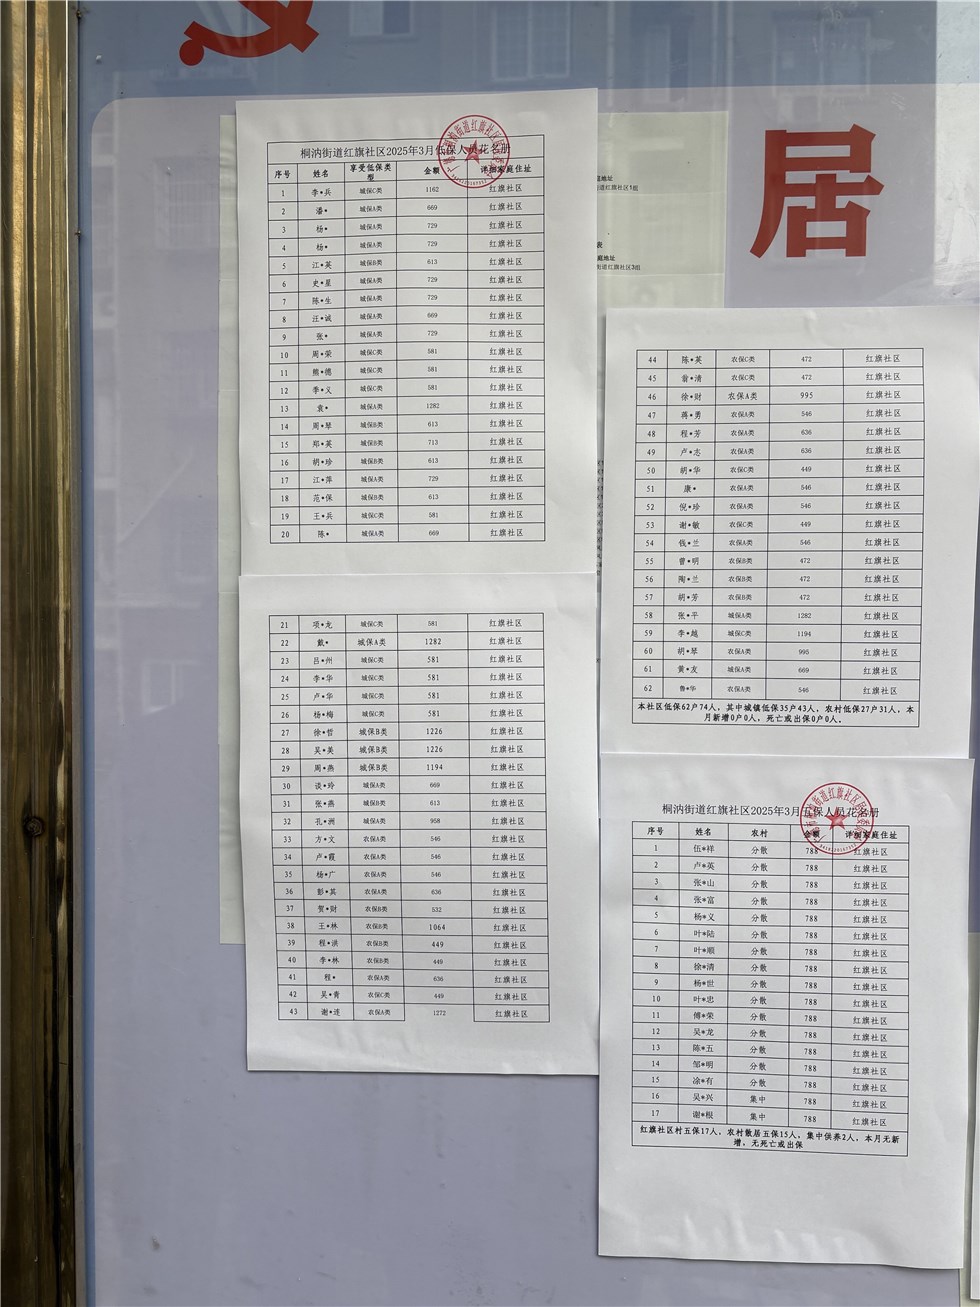 居
桐汭街道红旗社区2025年3月低保人员花名册
序号 姓名 享受低保类型 金额 详细家庭住址
1 李*兵 城保C类 1162 红旗社区
2 潘* 城保A类 669 红旗社区
3 杨* 城保A类 729 红旗社区
4 杨* 城保A类 729 红旗社区
5 江*英 城保B类 613 红旗社区
6 史*星 城保A类 729 红旗社区
7 陈*生 城保A类 729 红旗社区
8 汪*诚 城保A类 669 红旗社区
9 张* 城保A类 729 红旗社区
10 周*荣 城保C类 581 红旗社区
11 熊*德 城保C类 581 红旗社区
12 李*义 城保C类 581 红旗社区
13 袁* 城保A类 1282 红旗社区
14 周*琴 城保B类 613 红旗社区
15 郑*英 城保B类 713 红旗社区
16 胡*珍 城保B类 613 红旗社区
17 江*萍 城保A类 729 红旗社区
18 范*保 城保B类 613 红旗社区
19 王*兵 城保C类 581 红旗社区
20 陈* 城保A类 669 红旗社区
21 项*龙 城保C类 581 红旗社区
22 戴* 城保A类 1282 红旗社区
23 吕*州 城保C类 581 红旗社区
24 李*华 城保C类 581 红旗社区
25 卢*华 城保C类 581 红旗社区
26 杨*梅 城保C类 581 红旗社区
27 徐*哲 城保B类 1226 红旗社区
28 吴*美 城保B类 1226 红旗社区
29 周*燕 城保B类 1194 红旗社区
30 谈*玲 城保A类 669 红旗社区
31 张*燕 城保B类 613 红旗社区
32 孔*洲 城保A类 958 红旗社区
33 方*文 农保A类 546 红旗社区
34 卢*霞 农保A类 546 红旗社区
35 杨*广 农保A类 546 红旗社区
36 彭*其 农保A类 636 红旗社区
37 贺*财 农保B类 532 红旗社区
38 王*林 农保B类 1064 红旗社区
39 程*洪 农保B类 449 红旗社区
40 李*林 农保B类 449 红旗社区
41 程* 农保A类 636 红旗社区
42 吴*青 农保C类 449 红旗社区
43 谢*连 农保A类 1272 红旗社区
44 陈*英 农保C类 472 红旗社区
45 翁*清 农保C类 472 红旗社区
46 徐*财 农保A类 995 红旗社区
47 蒋*勇 农保A类 546 红旗社区
48 程*芳 农保A类 636 红旗社区
49 卢*志 农保A类 636 红旗社区
50 胡*华 农保C类 449 红旗社区
51 康* 农保A类 546 红旗社区
52 倪*珍 农保A类 546 红旗社区
53 谢*敏 农保C类 449 红旗社区
54 钱*兰 农保A类 546 红旗社区
55 曾*明 农保B类 472 红旗社区
56 陶*兰 农保B类 472 红旗社区
57 胡*芳 农保B类 472 红旗社区
58 张*平 城保A类 1282 红旗社区
59 李*越 城保C类 1194 红旗社区
60 胡*琴 农保A类 995 红旗社区
61 黄*友 城保A类 669 红旗社区
62 鲁*华 农保A类 546 红旗社区
本社区低保62户74人，其中城镇低保35户43人，农村低保27户31人，本
月新增0户0人，死亡或出保0户0人。
桐汭街道红旗社区2025年3月五保人员花名册
序号 姓名 农村 金额 详细家庭住址
1 伍*祥 分散 788 红旗社区
2 卢*英 分散 788 红旗社区
3 张*山 分散 788 红旗社区
4 张*富 分散 788 红旗社区
5 杨*义 分散 788 红旗社区
6 叶*陆 分散 788 红旗社区
7 叶*顺 分散 788 红旗社区
8 徐*清 分散 788 红旗社区
9 杨*世 分散 788 红旗社区
10 叶*忠 分散 788 红旗社区
11 傅*荣 分散 788 红旗社区
12 吴*龙 分散 788 红旗社区
13 陈*五 分散 788 红旗社区
14 邹*明 分散 788 红旗社区
15 涂*有 分散 788 红旗社区
16 吴*兴 集中 788 红旗社区
17 谢*根 集中 788 红旗社区
红旗社区村五保17人，农村散居五保15人，集中供养2人，本月无新
增，无死亡或出保